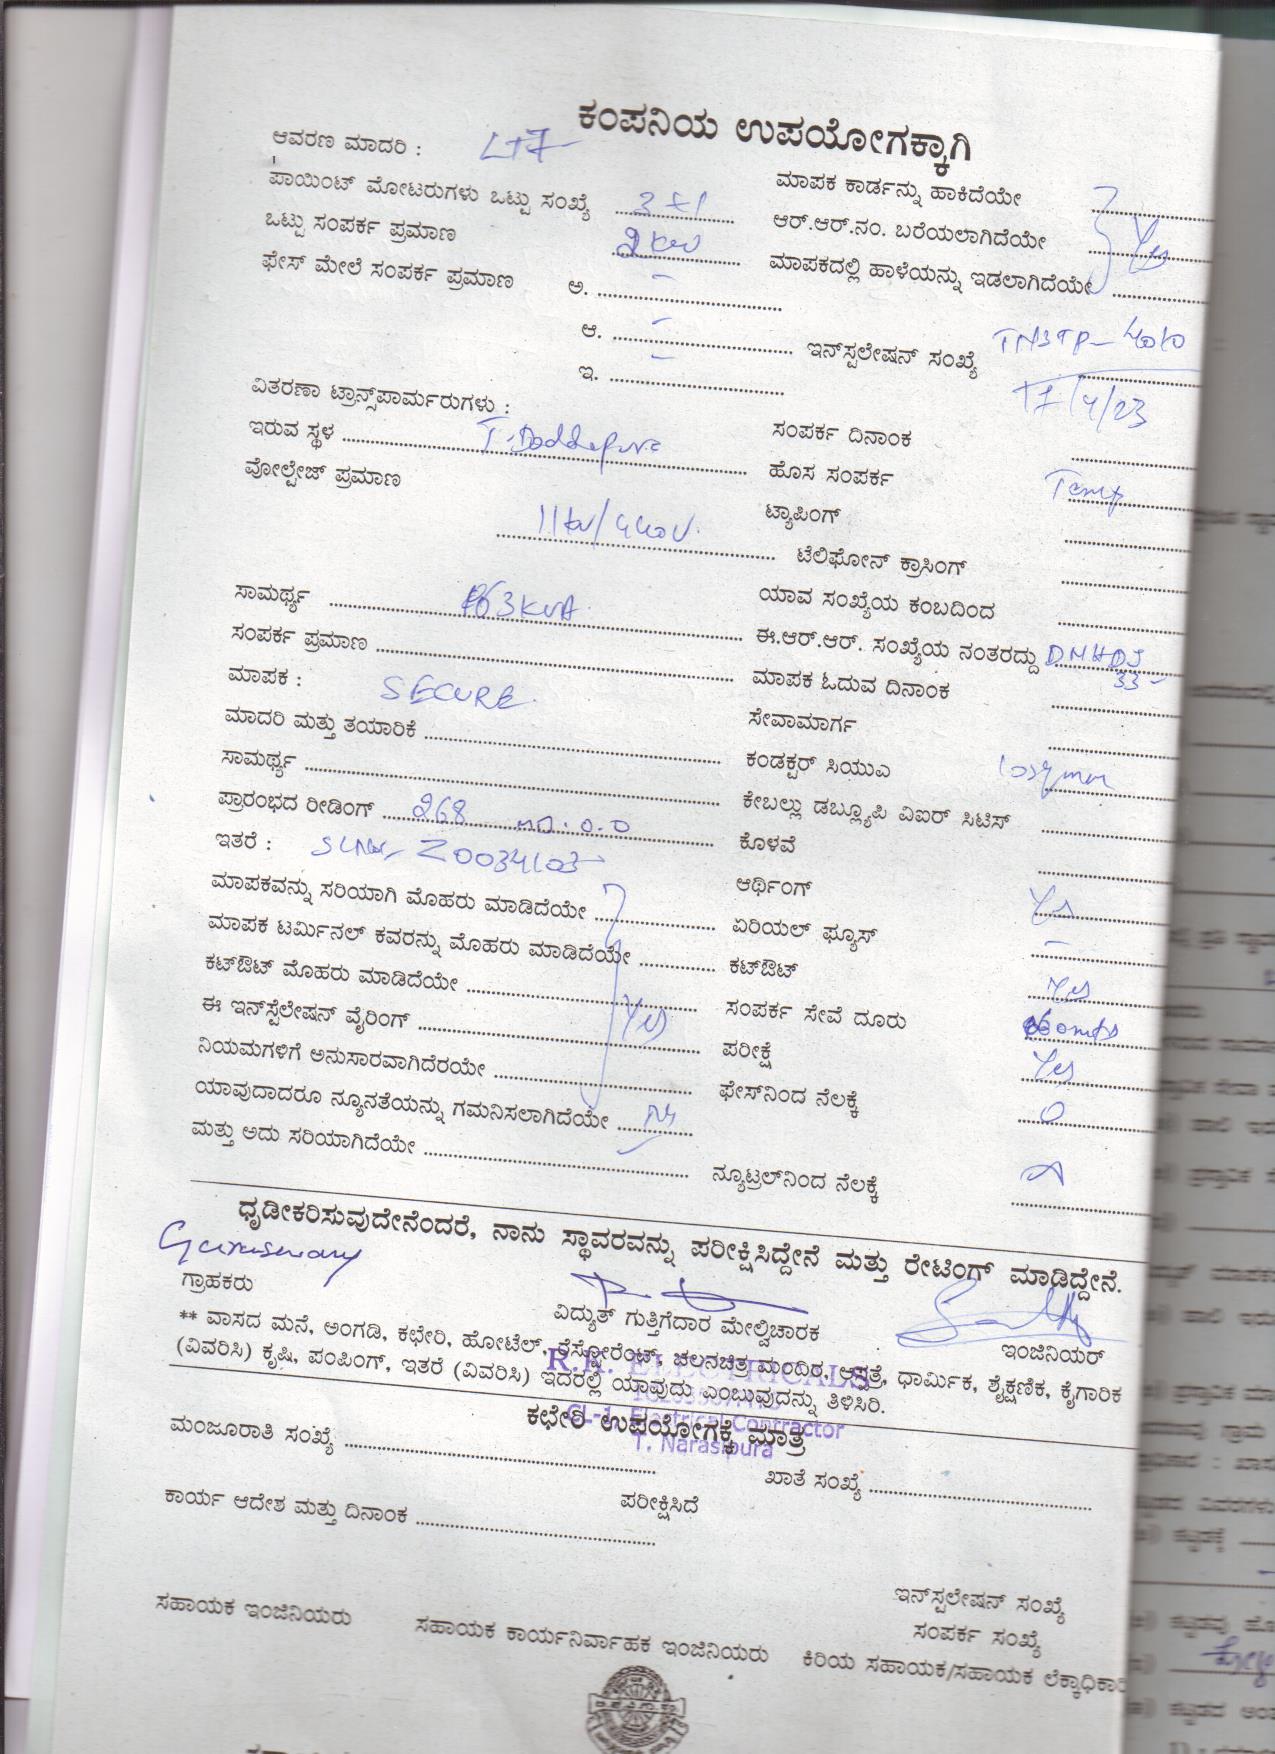 ಕಂಪನಿಯ ಉಪಯೋಗಕ್ಕಾಗಿ
ಆವರಣ ಮಾದರಿ : LT7
ಪಾಯಿಂಟ್ ಮೋಟರುಗಳು ಒಟ್ಟು ಸಂಖ್ಯೆ 3+1
ಒಟ್ಟು ಸಂಪರ್ಕ ಪ್ರಮಾಣ 2 kw
ಫೇಸ್ ಮೇಲೆ ಸಂಪರ್ಕ ಪ್ರಮಾಣ ಅ. –
ಆ. –
ಇ. –
ವಿತರಣಾ ಟ್ರಾನ್ಸ್‌ಪಾರ್ಮರುಗಳು :
ಇರುವ ಸ್ಥಳ T. Doddapura
ವೋಲ್ಟೇಜ್ ಪ್ರಮಾಣ
11kv/440V.
ಸಾಮರ್ಥ್ಯ 63KVA
ಸಂಪರ್ಕ ಪ್ರಮಾಣ
ಮಾಪಕ : SECURE
ಮಾದರಿ ಮತ್ತು ತಯಾರಿಕೆ
ಸಾಮರ್ಥ್ಯ
ಪ್ರಾರಂಭದ ರೀಡಿಂಗ್ 268 MD. 0.0
ಇತರೆ :
ಮಾಪಕವನ್ನು ಸರಿಯಾಗಿ ಮೊಹರು ಮಾಡಿದೆಯೇ
ಮಾಪಕ ಟರ್ಮಿನಲ್ ಕವರನ್ನು ಮೊಹರು ಮಾಡಿದೆಯೇ
ಕಟ್‌ಔಟ್ ಮೊಹರು ಮಾಡಿದೆಯೇ
ಈ ಇನ್‌ಸ್ಪೆಲೇಷನ್ ವೈರಿಂಗ್ Yes
ನಿಯಮಗಳಿಗೆ ಅನುಸಾರವಾಗಿದೆರಯೇ
ಯಾವುದಾದರೂ ನ್ಯೂನತೆಯನ್ನು ಗಮನಿಸಲಾಗಿದೆಯೇ
ಮತ್ತು ಅದು ಸರಿಯಾಗಿದೆಯೇ
ಮಾಪಕ ಕಾರ್ಡನ್ನು ಹಾಕಿದೆಯೇ
ಆರ್.ಆರ್.ನಂ. ಬರೆಯಲಾಗಿದೆಯೇ Yes
ಮಾಪಕದಲ್ಲಿ ಹಾಳೆಯನ್ನು ಇಡಲಾಗಿದೆಯೇ
ಇನ್‌ಸ್ಪಲೇಷನ್ ಸಂಖ್ಯೆ
17/4/23
ಸಂಪರ್ಕ ದಿನಾಂಕ
ಹೊಸ ಸಂಪರ್ಕ Temp
ಟ್ಯಾಪಿಂಗ್
ಟೆಲಿಫೋನ್ ಕ್ರಾಸಿಂಗ್
ಯಾವ ಸಂಖ್ಯೆಯ ಕಂಬದಿಂದ
ಈ.ಆರ್.ಆರ್. ಸಂಖ್ಯೆಯ ನಂತರದ್ದು
33
ಮಾಪಕ ಓದುವ ದಿನಾಂಕ
ಸೇವಾಮಾರ್ಗ
ಕಂಡಕ್ಟರ್ ಸಿಯುಎ 10sqmm
ಕೇಬಲ್ಲು ಡಬ್ಲ್ಯೂಪಿ ವಿಐರ್ ಸಿಟಿಸ್
ಕೊಳವೆ
ಆರ್ಥಿಂಗ್ Yes
ಏರಿಯಲ್ ಫ್ಯೂಸ್ –
ಕಟ್‌ಔಟ್ Yes
ಸಂಪರ್ಕ ಸೇವೆ ದೂರು
ಪರೀಕ್ಷೆ Yes
ಫೇಸ್‌ನಿಂದ ನೆಲಕ್ಕೆ
ನ್ಯೂಟ್ರಲ್‌ನಿಂದ ನೆಲಕ್ಕೆ
ಧೃಡೀಕರಿಸುವುದೇನೆಂದರೆ, ನಾನು ಸ್ಥಾವರವನ್ನು ಪರೀಕ್ಷಿಸಿದ್ದೇನೆ ಮತ್ತು ರೇಟಿಂಗ್ ಮಾಡಿದ್ದೇನೆ.
ಗ್ರಾಹಕರು ವಿದ್ಯುತ್ ಗುತ್ತಿಗೆದಾರ ಮೇಲ್ವಿಚಾರಕ ಇಂಜಿನಿಯರ್
** ವಾಸದ ಮನೆ, ಅಂಗಡಿ, ಕಛೇರಿ, ಹೋಟೆಲ್, ರೆಸ್ಟೋರೆಂಟ್, ಚಲನಚಿತ್ರ ಮಂದಿರ, ಆಸ್ಪತ್ರೆ, ಧಾರ್ಮಿಕ, ಶೈಕ್ಷಣಿಕ, ಕೈಗಾರಿಕ
(ವಿವರಿಸಿ) ಕೃಷಿ, ಪಂಪಿಂಗ್, ಇತರೆ (ವಿವರಿಸಿ) ಇದರಲ್ಲಿ ಯಾವುದು ಎಂಬುವುದನ್ನು ತಿಳಿಸಿರಿ.
ELECTRICALS
CL-1, Electrical Contractor
T. Narasipura
ಕಛೇರಿ ಉಪಯೋಗಕ್ಕೆ ಮಾತ್ರ
ಮಂಜೂರಾತಿ ಸಂಖ್ಯೆ ಖಾತೆ ಸಂಖ್ಯೆ
ಕಾರ್ಯ ಆದೇಶ ಮತ್ತು ದಿನಾಂಕ ಪರೀಕ್ಷಿಸಿದೆ
ಇನ್‌ಸ್ಪಲೇಷನ್ ಸಂಖ್ಯೆ
ಸಂಪರ್ಕ ಸಂಖ್ಯೆ
ಸಹಾಯಕ ಇಂಜಿನಿಯರು ಸಹಾಯಕ ಕಾರ್ಯನಿರ್ವಾಹಕ ಇಂಜಿನಿಯರು ಕಿರಿಯ ಸಹಾಯಕ/ಸಹಾಯಕ ಲೆಕ್ಕಾಧಿಕಾರಿ